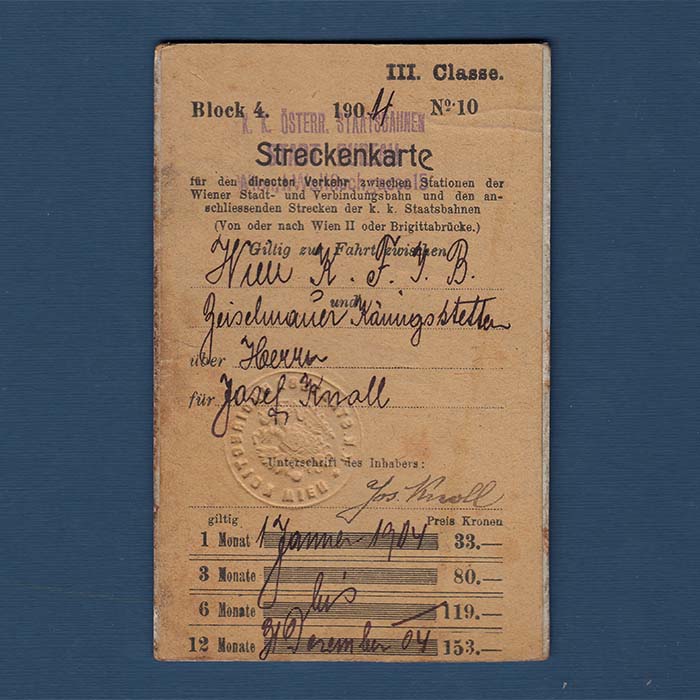 III. Classe.
Block 4. 1904 No 10
K. K. ÖSTERR. STAATSBAHNEN
Streckenkarte
für den directen Verkehr zwischen Stationen der
Wiener Stadt- und Verbindungsbahn und den an-
schliessenden Strecken der k. k. Staatsbahnen
(Von oder nach Wien II oder Brigittabrücke.)
Giltig zur Fahrt zwischen
Wien K. F. J. B.
und
Zeiselmauer Känigsstetten
über Herrn
für Josef Knall
Unterschrift des Inhabers:
Jos. Knoll
giltig Preis Kronen
1 Monat 1 Jänner 1904 33.—
3 Monate 80.—
bis
6 Monate 119.—
12 Monate 31 Dezember 04 153.—
WIEN